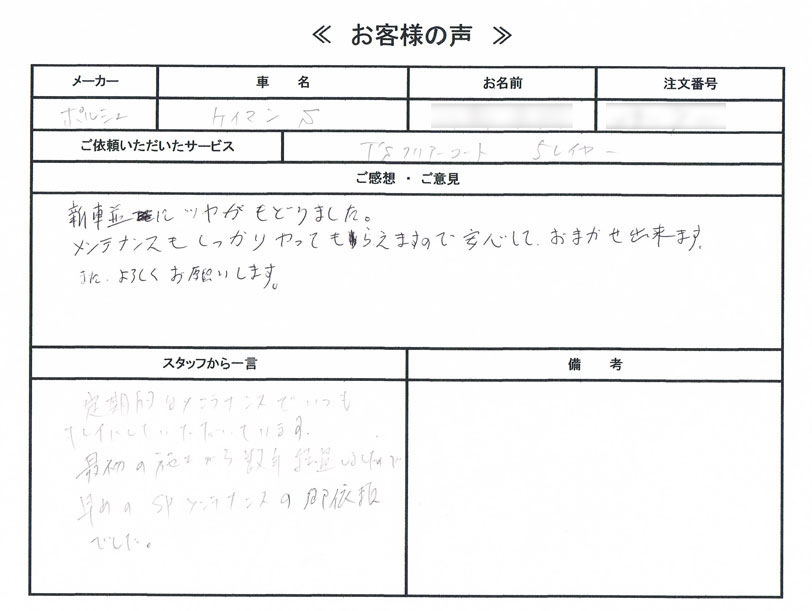 ≪ お客様の声 ≫
メーカー 車 名 お名前 注文番号
ポルシェ ケイマン S
ご依頼いただいたサービス
クリアーコート 5レイヤー
ご感想 ・ ご意見
新車並に ツヤが もどりました。
メンテナンスも しっかり やって もらえますので 安心して、おまかせ 出来ます。
また、よろしく お願いします。
スタッフから一言 備 考
定期的なメンテナンスで いつも
キレイにしていただいています。
最初の施工から 数年 経過しましたので
早めの SPメンテナンスの 御依頼
でした。